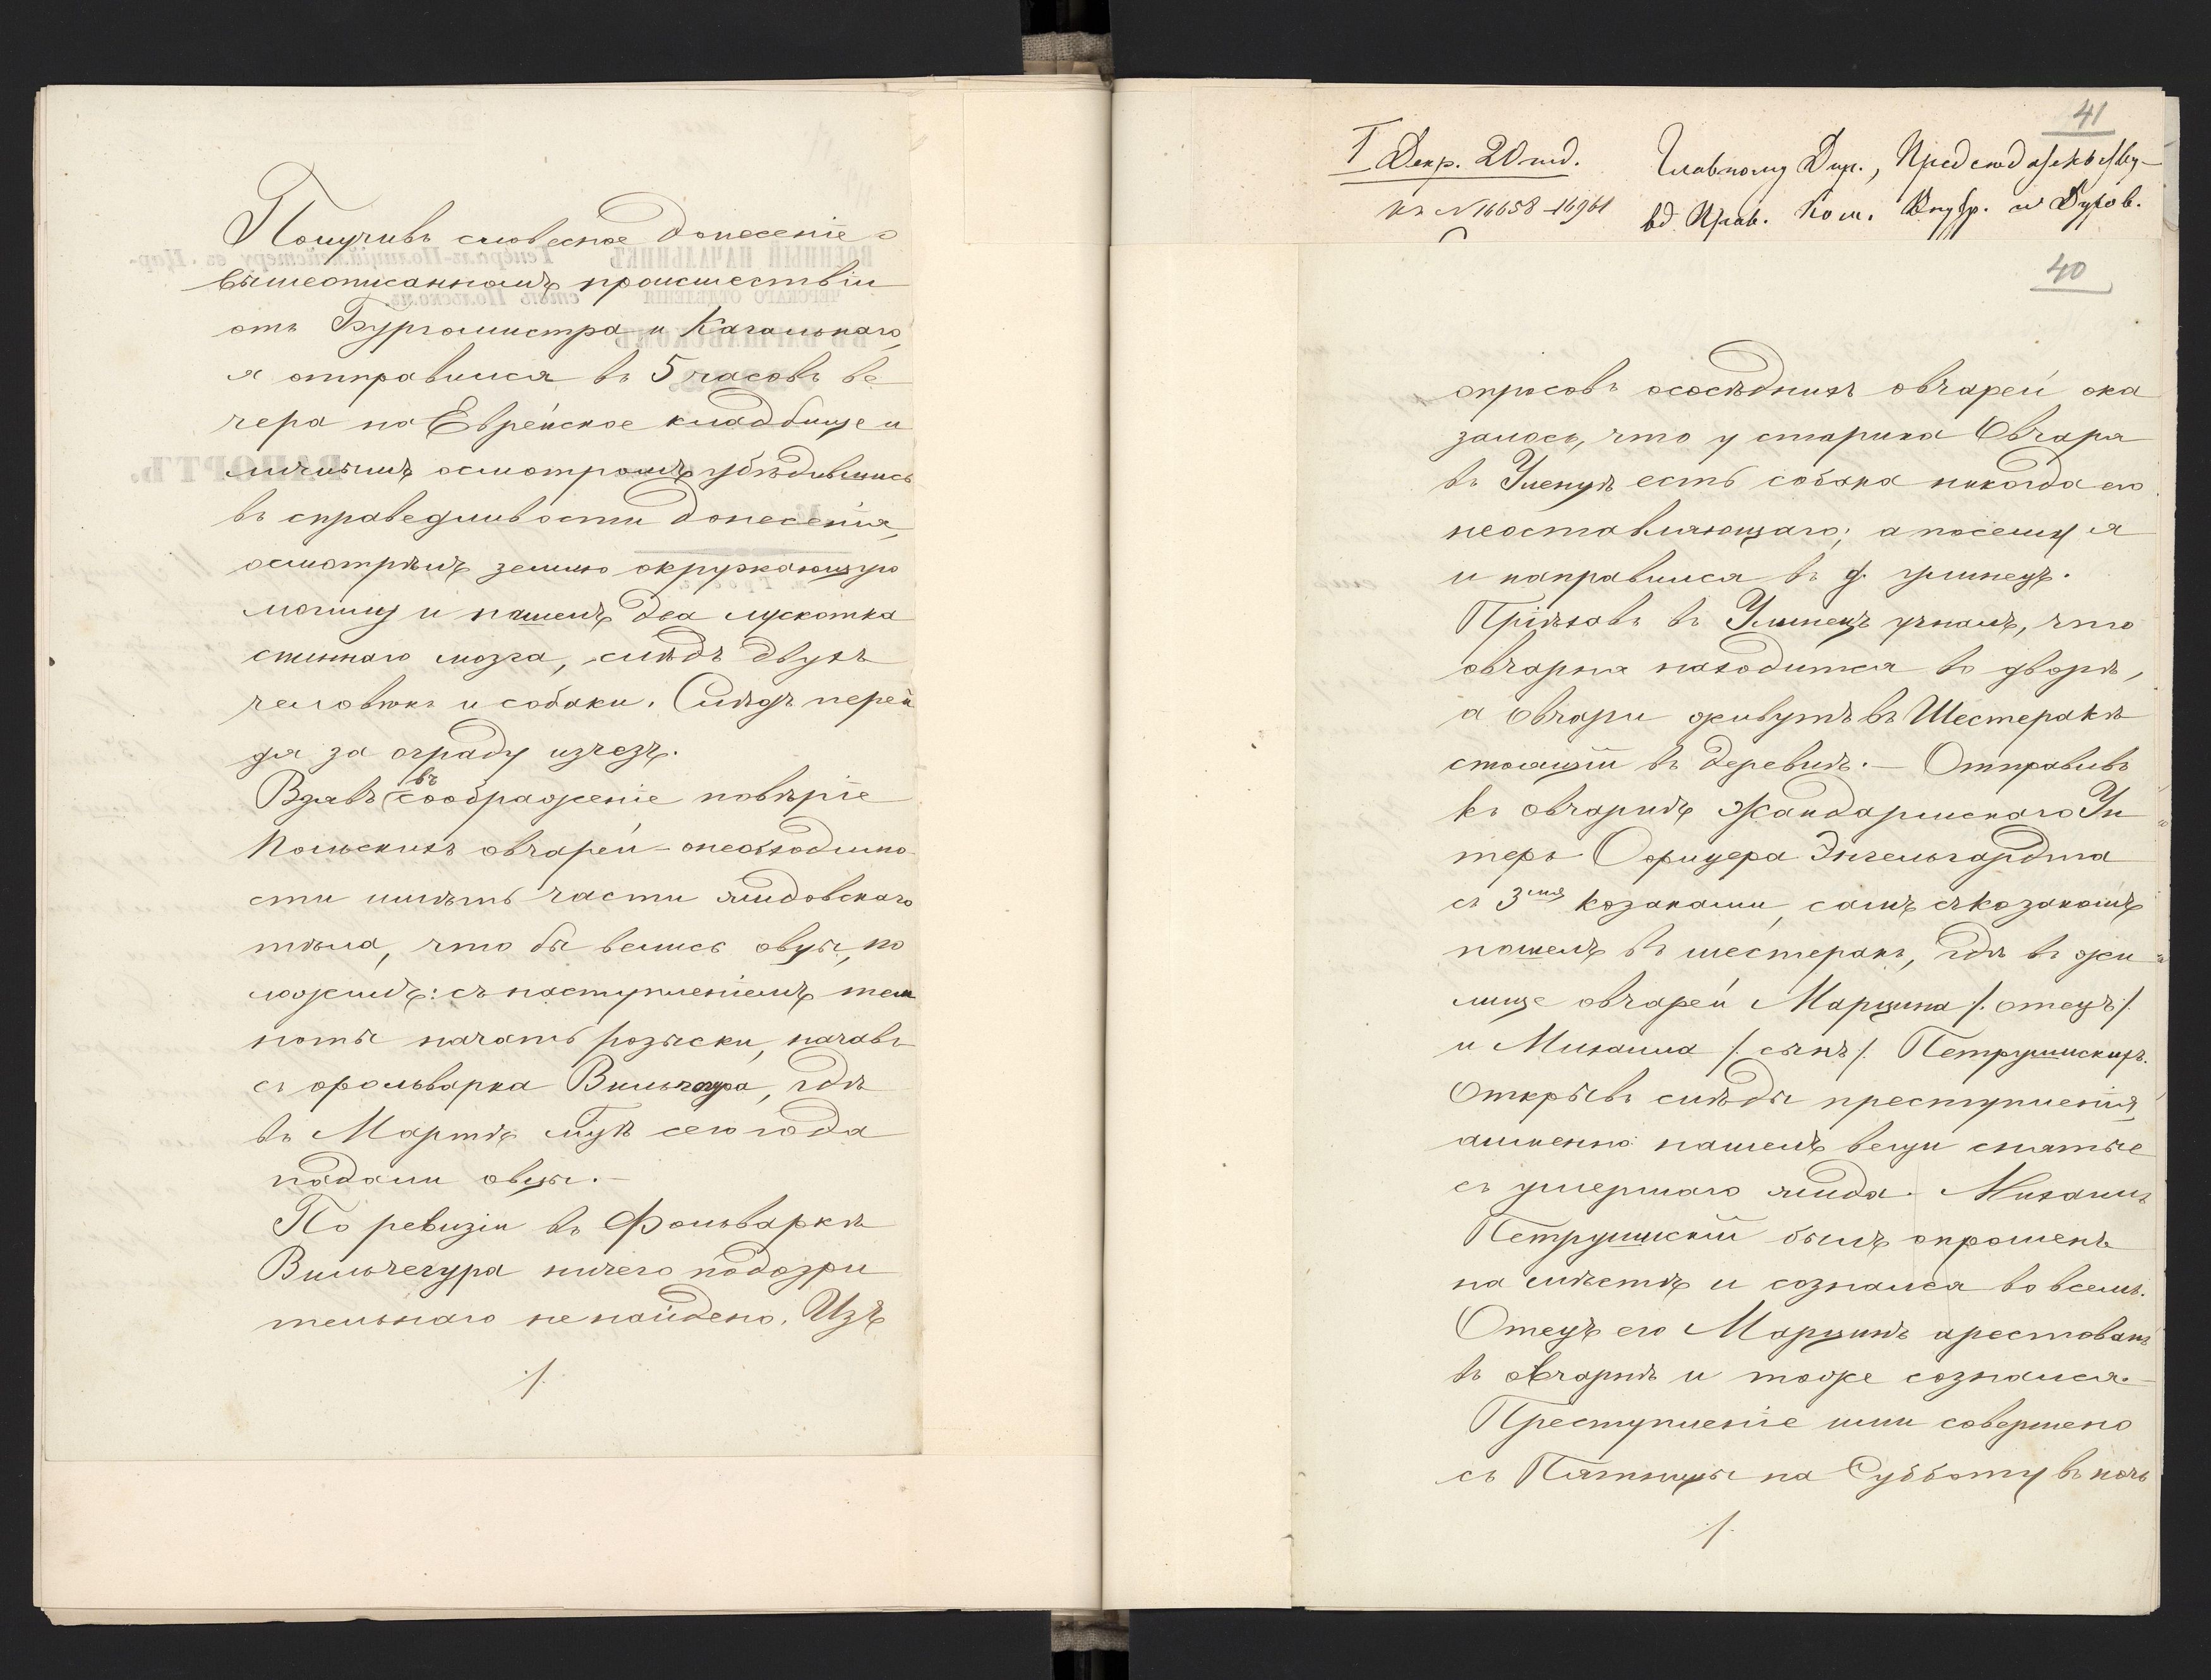 Получивъ словесное донесеніе о
вышеописанномъ происшествіи
отъ Бургомистра и Кагальнаго,
я отправился въ 5 часовъ ве
чера на Еврейское кладбище и
личнымъ осмотромъ убѣдившись
въ справедливости донесенія,
осмотрѣлъ землю окружающую
могилу и нашелъ два лускотка
спиннаго мозга, слѣдъ двухъ
человѣкъ и собаки. Слѣдъ перей
дя за ограду изчезъ.
Взявъ въ сообраюженіе повѣріе
Польскихъ овчарей – о необходимо
сти имѣть части жидовскаго
тѣла, что бы велись овцы, по
ложилъ: съ наступленіемъ тем
ноты начать розыски, начавъ
съ фольварка Вильчегура, гдѣ
въ Мартѣ мцѣ сего года
падали овцы.–
По ревизіи въ Фольваркѣ
Вильчегура ничего подозри
тельнаго не найдено. Изъ
./.
41
I Декр. 20
къ N 16658–16961
Главному Дир., Предсѣдательству-
въ Прав. Ком. Внутр. и Духов.
40
опросовъ ососѣднихъ овчарей ока
залось, что у старика Овчара
въ Уленцѣ есть собака никогда его
неоставляющаго; а посему я
и направился въ д. Улинецъ.
Пріѣхавъ въ Улинецъ узналъ, что
овчарня находится въ дворѣ,
а Овчари живутъ въ Шестеракѣ
стоящій въ деревнѣ.– Отправивъ
къ овчарнѣ Жандармскаго Ун
теръ Офицера Энгельгардта
съ 3мя козаками, самъ съ козакомъ
пошелъ въ шестеракъ, гдѣ въ жи
лище овчарей Марцина /. отецъ /.
и Михаила /. сынъ /. Петрушискихъ.
Открывъ слѣды преступленія,
аименно: нашелъ вещи снятые
съ умершаго жида. Михаилъ
Петрушискій былъ опрошенъ
на мѣстѣ и сознался во всемъ.
Отецъ его Марцинъ арестованъ
въ овчарнѣ и тоже сознался.–
Преступленіе ими совершено
съ Пятницы на Субботу въ ночь
./.